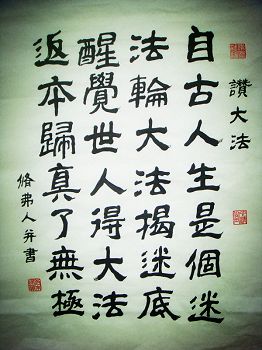 讚大法
自古人生是個迷
法輪大法揭迷底
醒覺世人得大法
返本歸真了無極
脩弗人并書